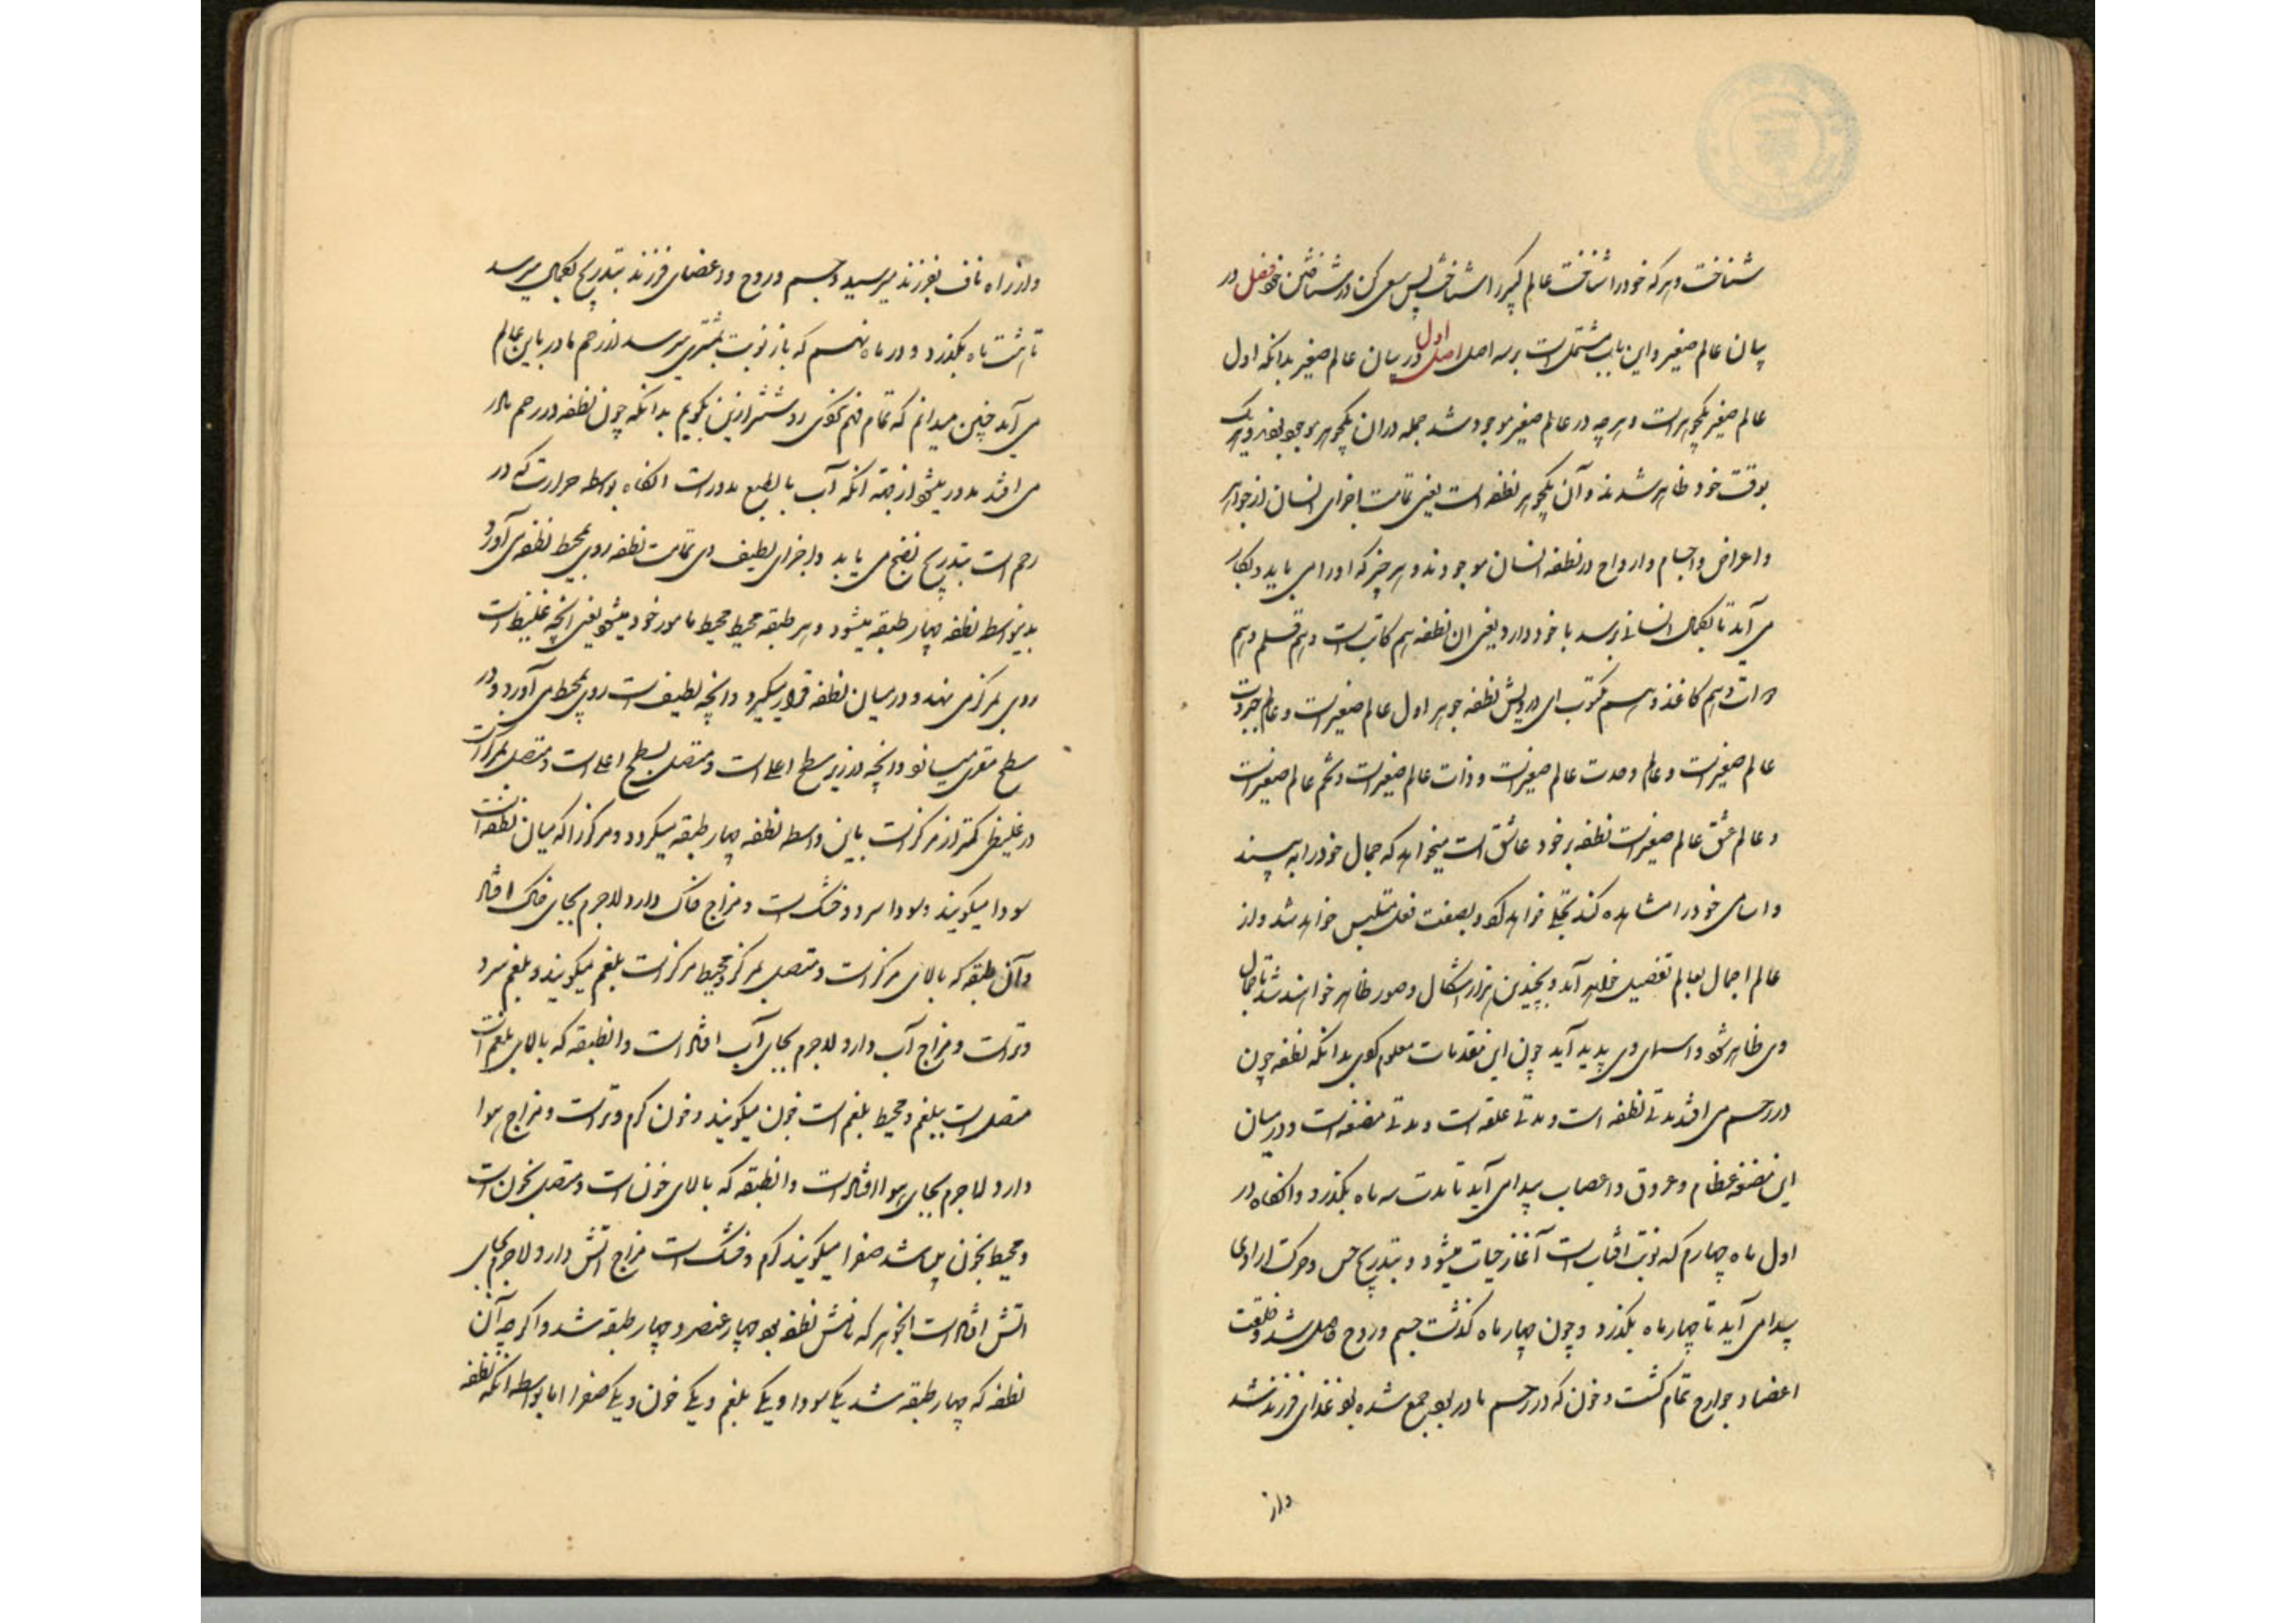 شناخت و هر که خود را شناخت عالم کبیر را شناخت پس سعی کن در شناختن خود فصل در
بیان عالم صغیر و این باب مشتمل است بر سه اصل اصل اول در بیان عالم صغیر بدانکه اول
عالم صغیر یکجوهر است و هر چه در عالم صغیر موجود شد جمله در ان یکجوهر موجود بودند و هر یک
بوقت خود ظاهر شدند و آن یکجوهر نطفه است یعنی تمامت اجزای انسان از جواهر
و اعراض و اجسام و ارواح در نطفه انسان موجودند و هر چیز که او را می باید و بکار
می آید تا بکمال انسانی برسد با خود دارد یعنی ان نطفه هم کاتبست و هم قلم و هم
دواتست و هم کاغذ و هم مکتوب ای درویش نطفه جوهر اول عالم صغیرست و عالم جبروت
عالم صغیرست و عالم وحدت عالم صغیرست و ذات عالم صغیرست و تخم عالم صغیرست
و عالم عشق عالم صغیرست نطفه بر خود عاشق است میخواهد که جمال خود را به بیند
و اسامی خود را مشاهده کند تجلی خواهد کرد و بصفت فعل متلبس خواهد شد و از
عالم اجمال بعالم تفصیل خواهد آمد و بچندین هزار اشکال و صور ظاهر خواهند شد تا جمال
وی ظاهر شود و اسمای وی پدید آید چون این مقدمات معلوم کردی بدانکه نطفه چون
در رحم می افتد مدتی نطفه است و مدتی علقه است و مدتی مضغه است و در میان
این مضغه عظام و عروق و اعصاب پیدا می آید تا مدت سه ماه بگذرد و انگاه در
اول ماه چهارم که نوبت افتاب است آغاز حیات میشود و بتدریج حس و حرکت ارادی
پیدا می آید تا چهار ماه بگذرد و چون چهار ماه گذشت جسم و روح حاصل شد و خلقت
اعضا و جوارح تمام گشت و خون که در رحم مادر بود جمع شده بود غذای فرزند شد
و از
و از راه ناف بفرزند میرسید و جسم و روح و اعضای فرزند بتدریج بکمال میرسد
تا هشت ماه بگذرد و در ماه نهم که باز نوبت بمشتری میرسد از رحم مادر باین عالم
می آید چنین میدانم که تمام فهم نکردی روشنتر ازین بگویم بدانکه چون نطفه در رحم مادر
می افتد مدور میشود از جهة آنکه آب بالطبع مدورست انگاه بواسطه حرارت که در
رحم است بتدریج نضج می یابد و اجزای لطیف وی تمامت نطفه روی بمحیط نطفه می آورد و
بدینواسطه نطفه چهار طبقه میشود و هر طبقه محیط محیط مادون خود میشود یعنی انچه غلیظ است
روی بمرکز می نهد و در میان نطفه قرار میگیرد و انچه لطیف است روی بمحیط می آورد و در
سطح مقعر میساند و انچه در زیر سطح اعلی است و متصل بسطح اعلی است و متصل بمرکز است
در غلیظی کمتر از مرکزست باین واسطه نطفه چهار طبقه میگردد و مرکز را که میان نطفه است
سودا میگویند و سودا سرد و خشک است و مزاج خاک دارد لاجرم بجای خاک افتاد
و آن طبقه که بالای مرکزست و متصل بمرکز و محیط مرکزست بلغم میگویند و بلغم سرد
و ترست و مزاج آب دارد لاجرم بجای آب افتاده است و انطبقه که بالای بلغم است
متصل است ببلغم و محیط بلغم است خون میگویند و خون گرم و ترست و مزاج هوا
دارد لاجرم بجای هوا افتاده است و انطبقه که بالای خون است و متصل بخون است
و محیط بخون باشد صفرا میگویند گرم و خشک است مزاج اتش دارد لاجرم بجای
اتش افتاده است انجوهر که نامش نطفه بود چهار عنصر و چهار طبقه شد و اگر چه آن
نطفه که چهار طبقه شد یکی سودا و یکی بلغم و یکی خون و یکی صفرا اما بواسطه انکه نطفه